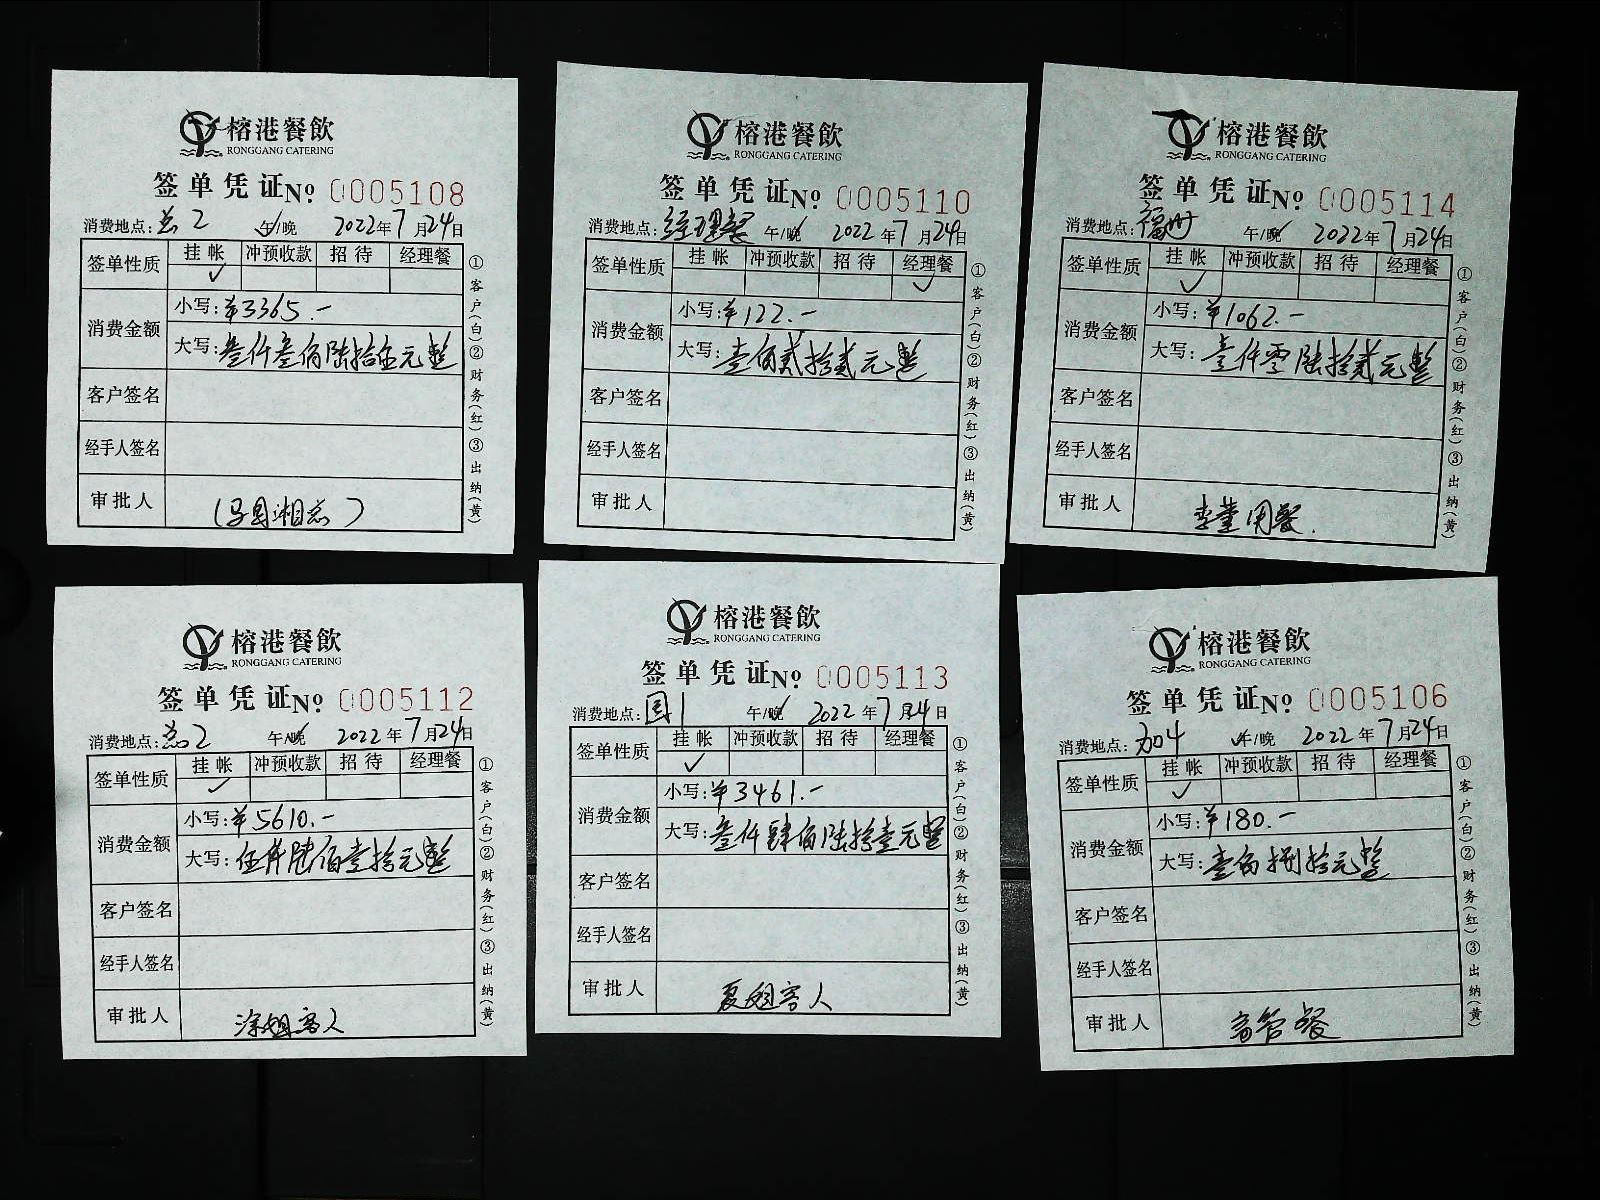 榕港餐飲
RONGGANG CATERING
签单凭证No 0005108
消费地点: 2 午/晚 2022年7月24日
签单性质 挂帐 冲预收款 招待 经理餐
✓
消费金额 小写:¥3365.-
大写:叁仟叁佰陆拾伍元整
客户签名
经手人签名
审批人
①客户(白)②财务(红)③出纳(黄)
榕港餐飲
RONGGANG CATERING
签单凭证No 0005110
消费地点:经理餐 午/晚 2022年7月24日
签单性质 挂帐 冲预收款 招待 经理餐
✓
消费金额 小写:¥122.-
大写:壹佰贰拾贰元整
客户签名
经手人签名
审批人
①客户(白)②财务(红)③出纳(黄)
榕港餐飲
RONGGANG CATERING
签单凭证No 0005114
消费地点:福州 午/晚 2022年7月24日
签单性质 挂帐 冲预收款 招待 经理餐
✓
消费金额 小写:¥1062.-
大写:壹仟零陆拾贰元整
客户签名
经手人签名
审批人 李董用餐.
①客户(白)②财务(红)③出纳(黄)
榕港餐飲
RONGGANG CATERING
签单凭证No 0005112
消费地点: 2 午/晚 2022年7月24日
签单性质 挂帐 冲预收款 招待 经理餐
✓
消费金额 小写:¥5610.-
大写:伍仟陆佰壹拾元整
客户签名
经手人签名
审批人 涂姐客人
①客户(白)②财务(红)③出纳(黄)
榕港餐飲
RONGGANG CATERING
签单凭证No 0005113
消费地点:国1 午/晚 2022年7月24日
签单性质 挂帐 冲预收款 招待 经理餐
✓
消费金额 小写:¥3461.-
大写:叁仟肆佰陆拾壹元整
客户签名
经手人签名
审批人 夏姐客人
①客户(白)②财务(红)③出纳(黄)
榕港餐飲
RONGGANG CATERING
签单凭证No 0005106
消费地点: 午/晚 2022年7月24日
签单性质 挂帐 冲预收款 招待 经理餐
✓
消费金额 小写:¥180.-
大写:壹佰捌拾元整
客户签名
经手人签名
审批人 高管餐
①客户(白)②财务(红)③出纳(黄)